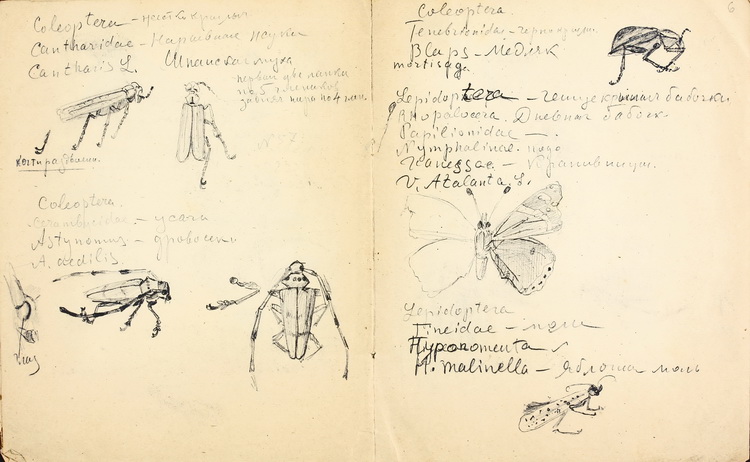 Coleoptera - жестка крылы
Cantharidae - Нарывные жуки
Cantharis L. Шпанская муха
первая две лапки
по 5 члеников
задняя пара по 4 член.
когти раздвоены.
Coleoptera.
Cerambycidae. - усачи
Astynomus - дровосеки
A. aedilis.
6
Coleoptera.
Tenebrionidae - чернотелки.
Blaps - Медляк
mortisaga.
Lepidoptera - чешуекрылыя бабочки
Rhopalocera. Дневныя бабочк.
Papilionidae - .
Nymphalinae.
Vanessae - Крапивницы.
V. Atalanta L.
Lepidoptera
Tineidae - моли
Hyponomenta
H. malinella - яблоня моль